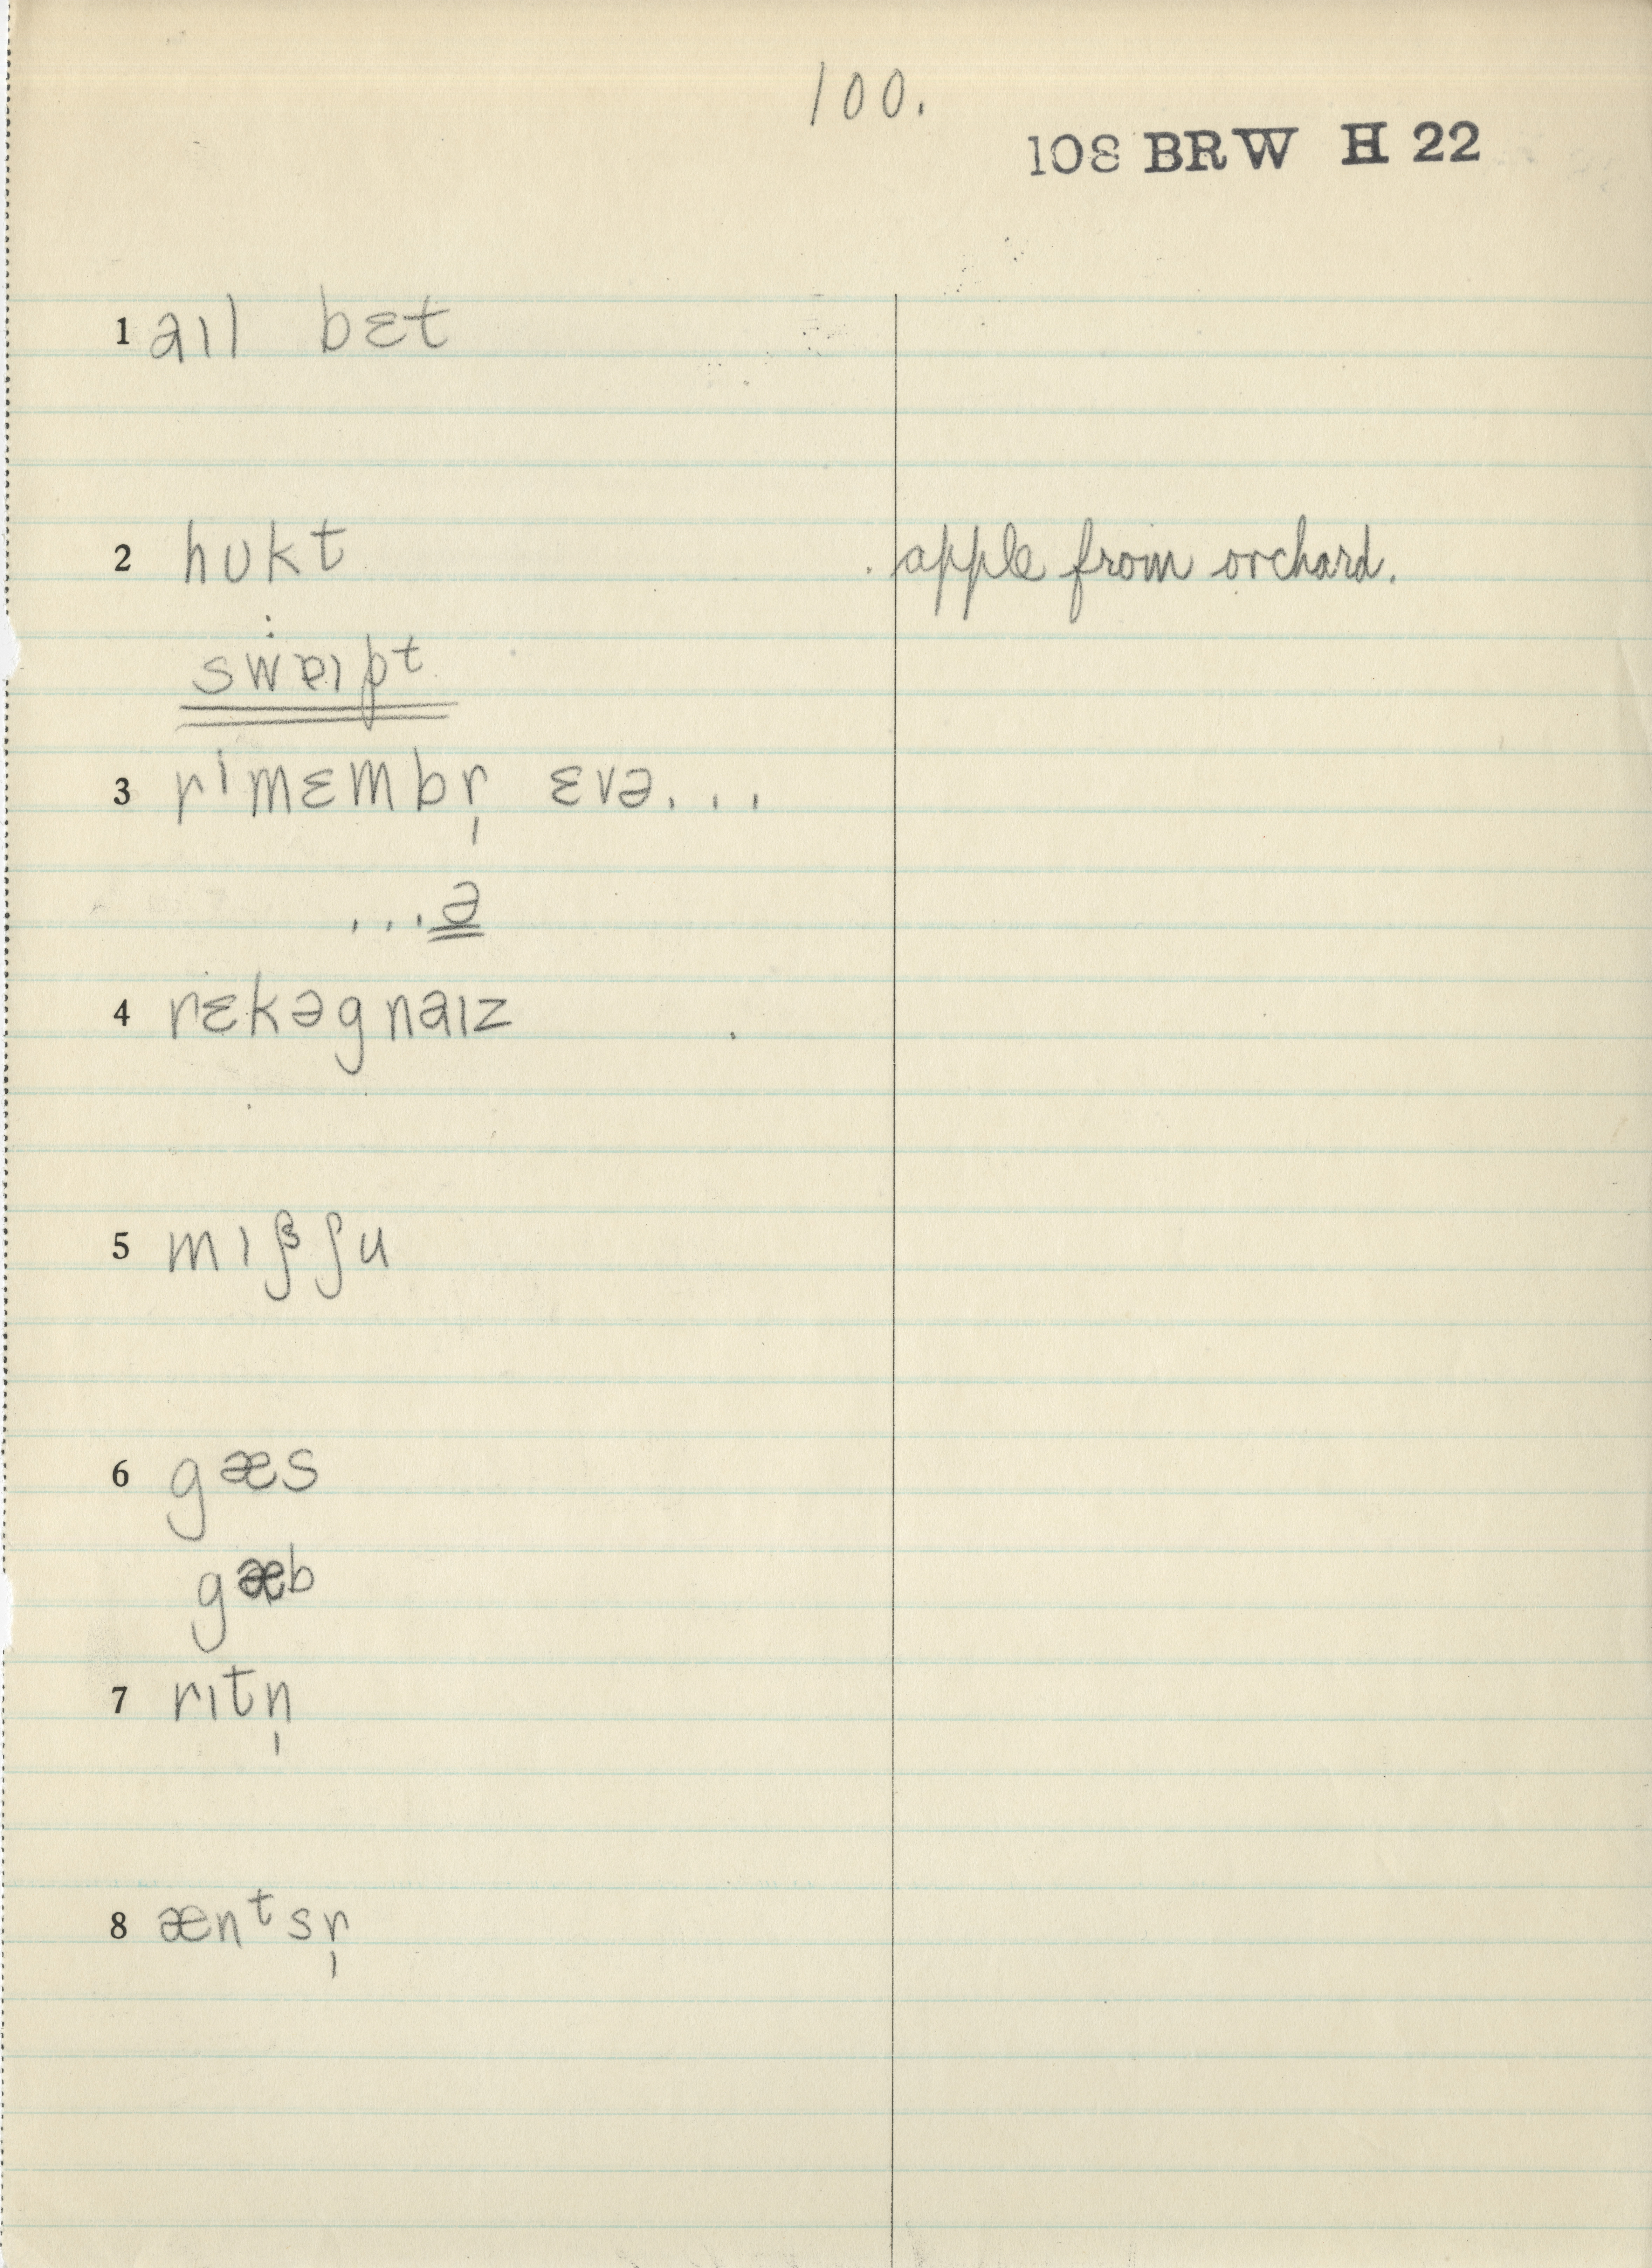 100.
108 BRW H 22
1 aɪl bɛt
2 hʊkt apple from orchard.
swɐɪpt
3 rɪmɛmbr̩ ɛvə...
...ə
4 rɛkəgnaɪz
5 mɪʃʃu
6 gæs
gæb
7 rɪtn̩
8 ænᵗsr̩